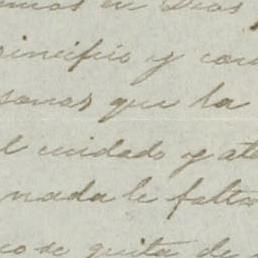 en Dios
rincipio y con
sonas que ha
l cuidado y ate
nada le falta
se quita de